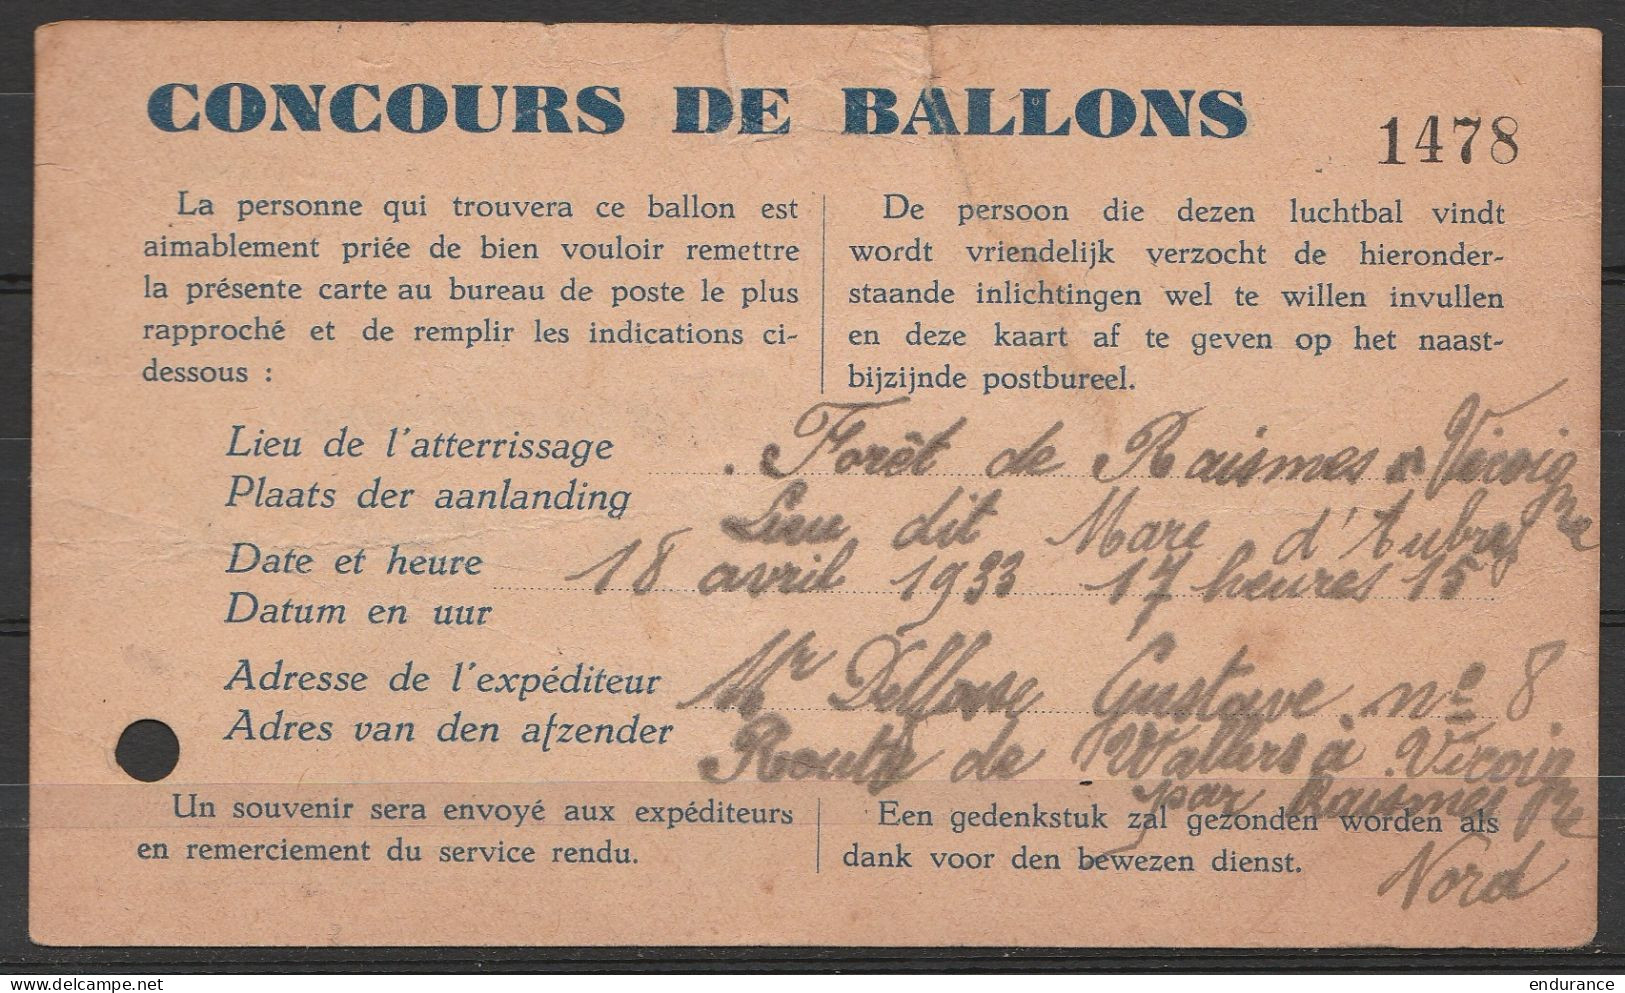 CONCOURS DE BALLONS
1478
La personne qui trouvera ce ballon est
aimablement priée de bien vouloir remettre
la présente carte au bureau de poste le plus
rapproché et de remplir les indications ci-
dessous :
De persoon die dezen luchtbal vindt
wordt vriendelijk verzocht de hieronder-
staande inlichtingen wel te willen invullen
en deze kaart af te geven op het naast-
bijzijnde postbureel.
Lieu de l'atterrissage
Plaats der aanlanding
Forêt de Raismes Vicoigne
Lieu dit Mare d'Aubry
Date et heure
Datum en uur
18 avril 1933 17 heures 15
Adresse de l'expéditeur
Adres van den afzender
Mr Gustave n° 8
Route de Wallers à Vicoigne
par Raismes
Nord
Un souvenir sera envoyé aux expéditeurs
en remerciement du service rendu.
Een gedenkstuk zal gezonden worden als
dank voor den bewezen dienst.
endurance
delcampe.net